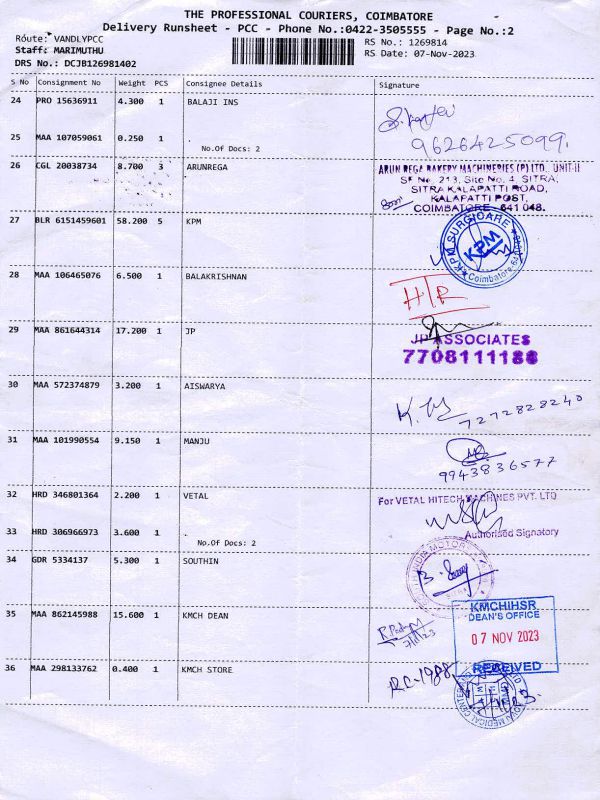 THE PROFESSIONAL COURIERS, COIMBATORE
Delivery Runsheet - PCC - Phone No.:0422-3505555 - Page No.:2
Route: VANDLYPCC
Staff: MARIMUTHU
DRS No.: DCJB126981402
RS No.: 1269814
RS Date: 07-Nov-2023
S No Consignment No Weight PCS Consignee Details Signature
24 PRO 15636911 4.300 1 BALAJI INS
25 MAA 107059061 0.250 1 .
No.Of Docs: 2
9626425099.
26 CGL 20038734 8.700 3 ARUNREGA
ARUN REGA BAKERY MACHINERIES (P) LTD., UNIT-II
SF No. 213, Site No. 4, SITRA,
SITRA KALAPATTI ROAD,
KALAPATTI POST,
COIMBATORE - 641 048.
27 BLR 6151459601 58.200 5 KPM
KPM SURGICARE
KPM
Coimbatore-641
28 MAA 106465076 6.500 1 BALAKRISHNAN
HTR
29 MAA 861644314 17.200 1 JP
JP ASSOCIATES
7708111188
30 MAA 572374879 3.200 1 AISWARYA
7272828240
31 MAA 101990554 9.150 1 MANJU
9943836577
32 HRD 346801364 2.200 1 VETAL
For VETAL HITECH MACHINES PVT. LTD
33 HRD 306966973 3.600 1 .
No.Of Docs: 2
Authorised Signatory
34 GDR 5334137 5.300 1 SOUTHIN
MOTOR
35 MAA 862145988 15.600 1 KMCH DEAN
7/11/23
KMCHIHSR
DEAN'S OFFICE
07 NOV 2023
RECEIVED
36 MAA 298133762 0.400 1 KMCH STORE
RC-1988